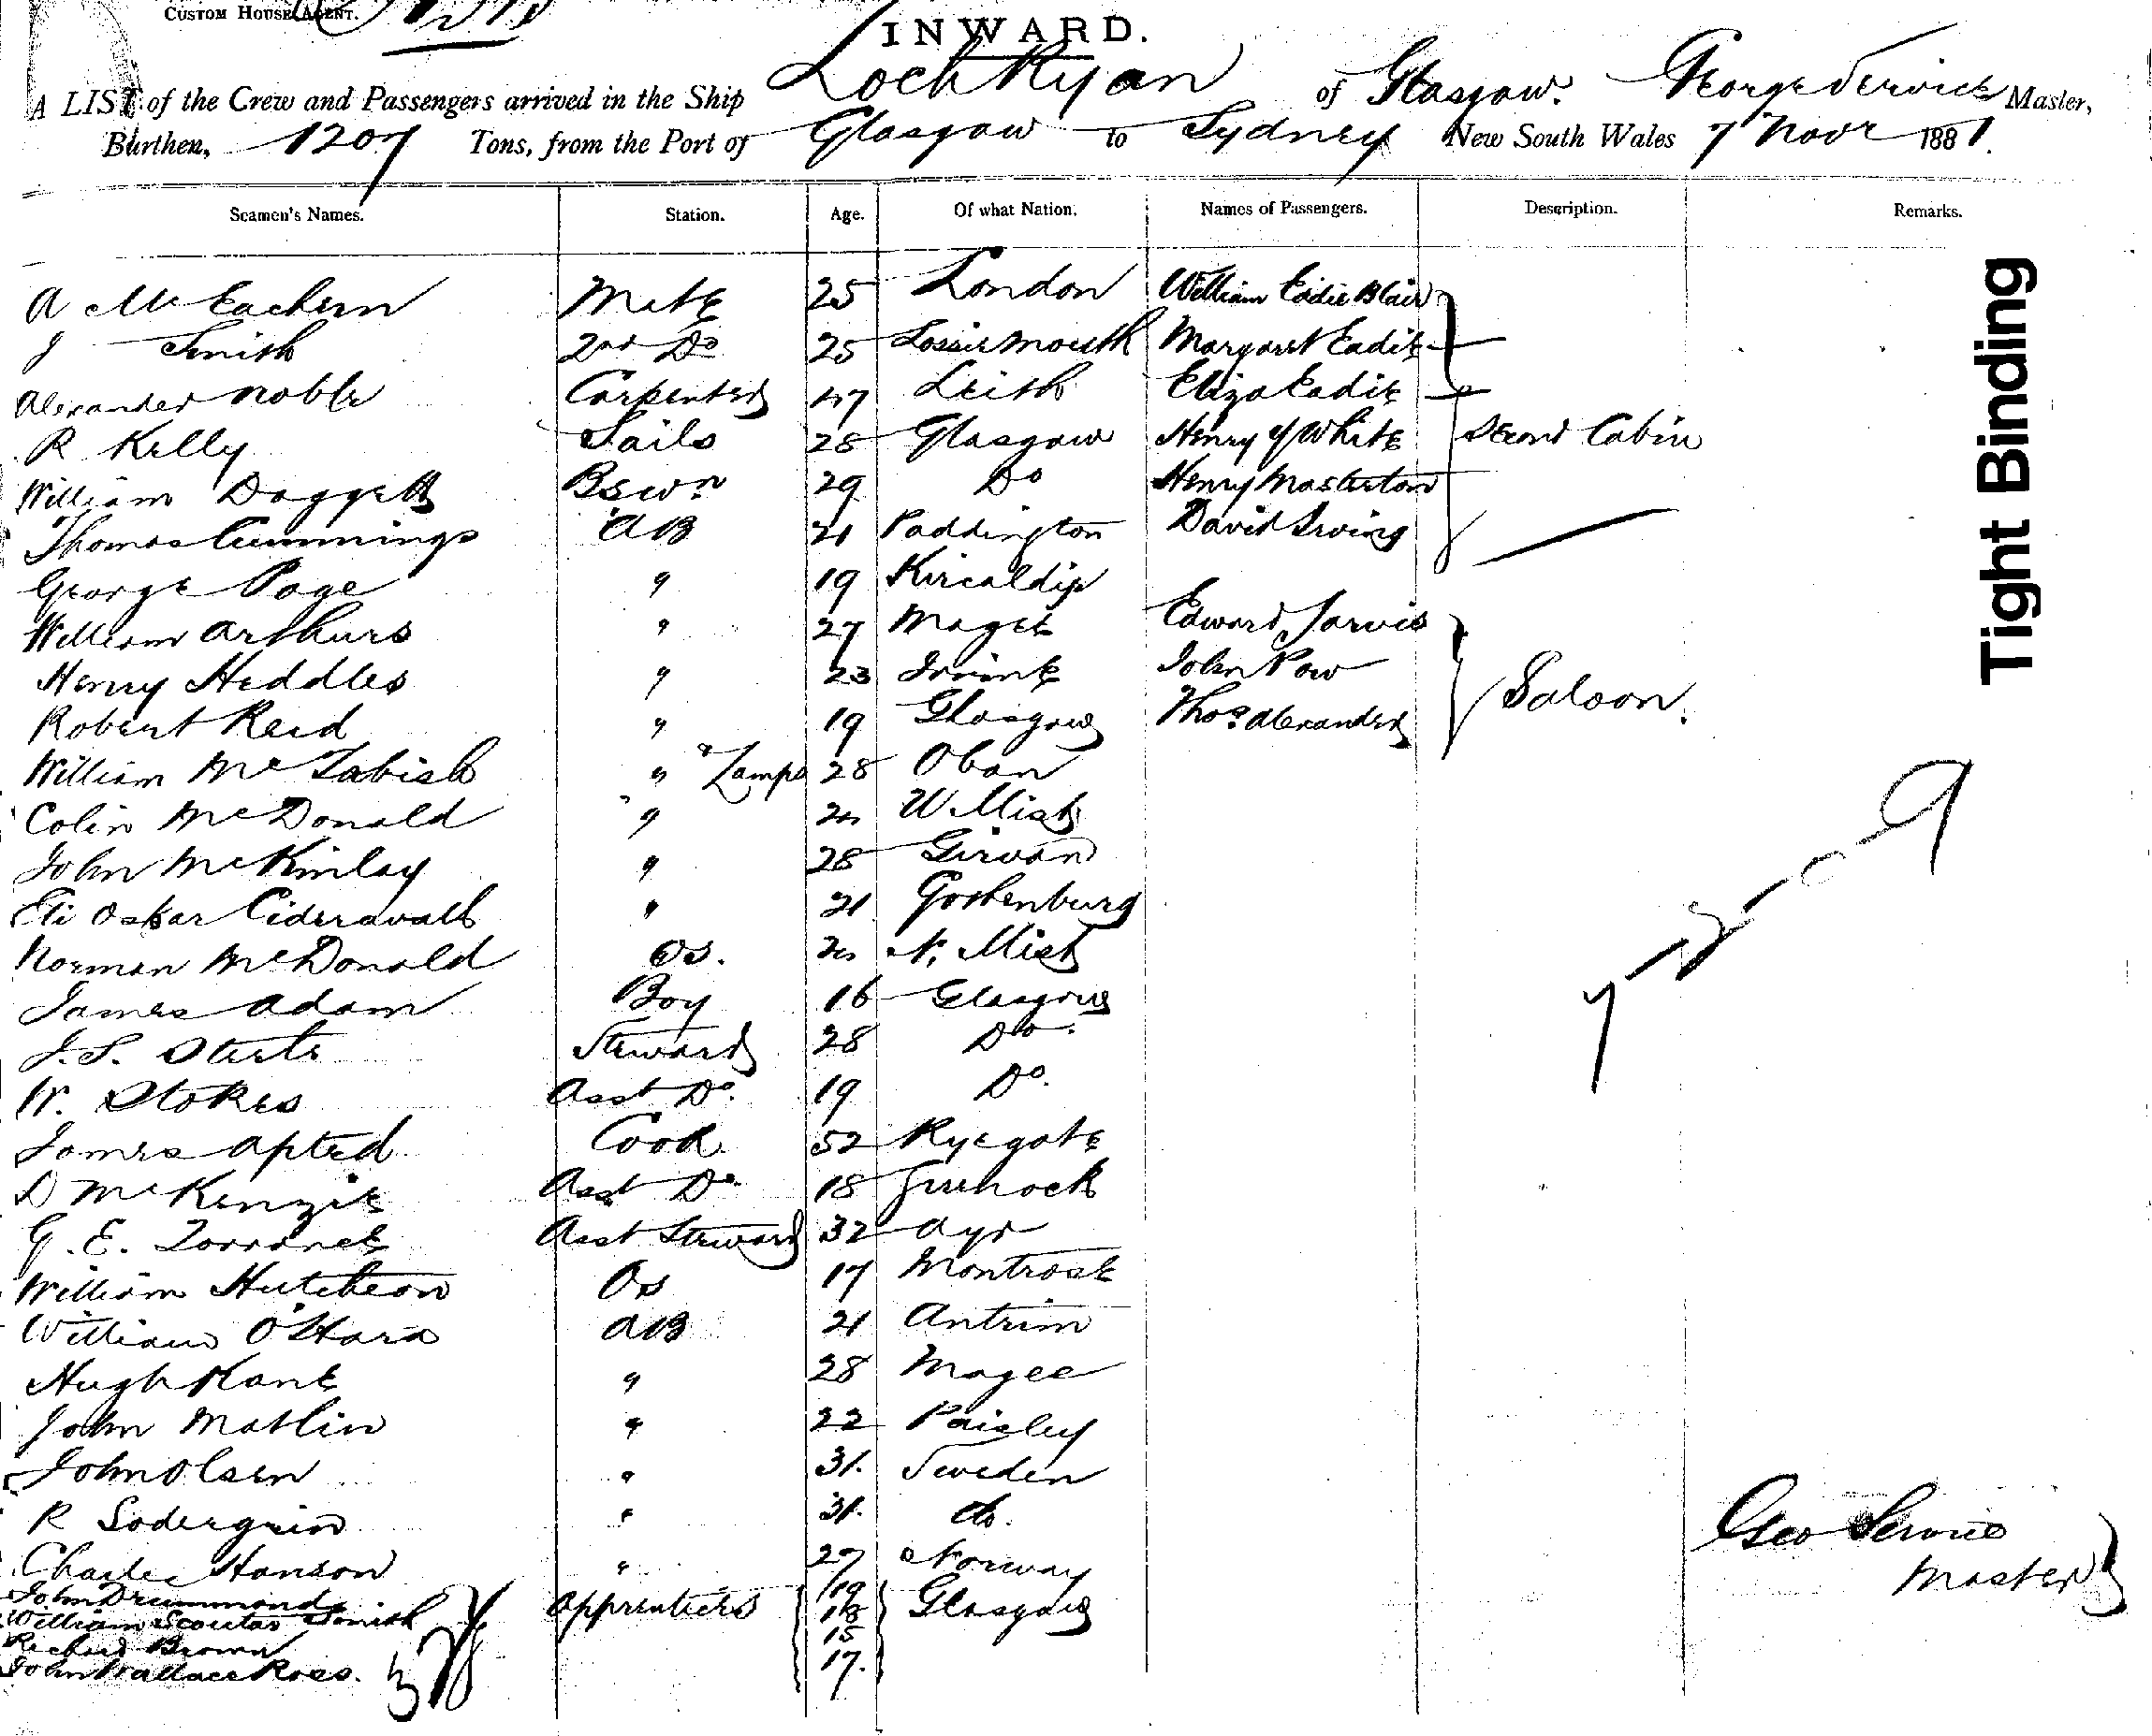 CUSTOM HOUSE AGENT.
INWARD.
A LIST of the Crew and Passengers arrived in the Ship Loch Ryan of Glasgow. George Service Master,
Burthen, 1207 Tons, from the Port of Glasgow to Sydney New South Wales 7 Novr 1881.
Seamen's Names. Station. Age. Of what Nation. Names of Passengers. Description. Remarks.
A McEachern Mate 25 London William Eadie Blair
J Smith 2nd Do 25 Lossiemouth Margaret Eadie
Alexander Noble Carpenter 47 Leith Eliza Eadie
R Kelly Sails 28 Glasgow Henry J White Second Cabin
William Doggett Bswn 29 Do Henry Masterton
Thomas Cummings AB 21 Paddington David Irving
George Page " 19 Kircaldip
William Arthurs " 27 Magee Edward Jarvis
Henry Heddles " 23 Irvine John Pow Saloon.
Robert Reid " 19 Glasgow Thos Alexander
William McTabish " & Lamps 28 Oban
Colin McDonald " W. Mist
John McKinlay " 28 Girvan
Eli Oskar " 21 Gothenburg
Norman McDonald OS. N. Mist
James Adam Boy 16 Glasgow
J.S. Steele Steward 28 Do.
W. Stokes Asst Do. 19 Do.
James Apted Cook 52 Ryegate
D McKenzie Asst Do 18 Greenock
G. E. Torrance Asst Steward 32 Ayr
William Hutcheon Os 17 Montrose
William O'Hara AB 21 Antrim
Hugh Kane " 28 Magee
John Matlin " 22 Paisley
John Olsen " 31. Sweden
R Sodergrein " 31. do.
Charles Hanson " 27 Norway
John Drummond Apprentices 19 Glasgow
William Scoular Smith 18
Richard Brown 15
John Wallace Ross. 17.
Geo Service
Master
Tight Binding